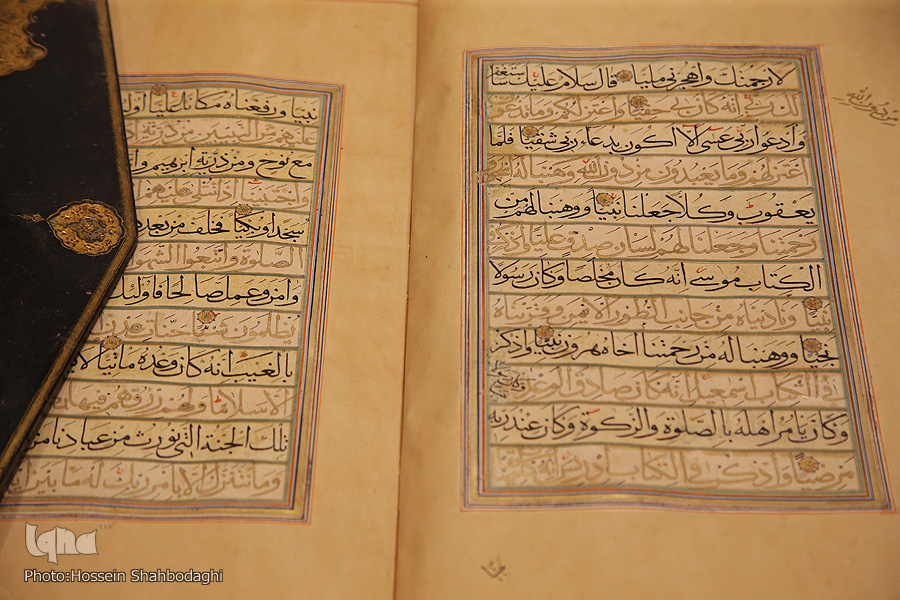 لارجمنك واهجرنى مليا قال سلام عليك ساستغفر
لك ربى انه كان بى حفيا واعتزلكم وما تدعون
وادعوا ربى عسى الا اكون بدعاء ربى شقيا فلما
اعتزلهم وما يعبدون من دون الله ووهبنا له
يعقوب وكلا جعلنا نبيا ووهبنا لهم من
رحمتنا وجعلنا لهم لسان صدق عليا واذكر
الكتاب موسى انه كان مخلصا وكان رسولا
نبيا وناديناه من جانب الطور الايمن وقربناه
نجيا ووهبنا له من رحمتنا اخاه هرون نبيا واذكر
فى الكتاب اسمعيل انه كان صادق الوعد
وكان يامر اهله بالصلوة والزكوة وكان عند ربه
مرضيا واذكر فى الكتاب ادريس انه كان
من دون الله
نبيا ورفعناه مكانا عليا
عليهم من النبيين من ذرية
مع نوح ومن ذرية ابرهيم
واجتبينا اذا تتلى عليهم
سجدا وبكيا فخلف من بعدهم
الصلوة واتبعوا الشهوات
وامن وعمل صالحا فاولئك
يظلمون شيئا جنات عدن
بالغيب انه كان وعده ماتيا لا
الا سلاما ولهم رزقهم فيها
تلك الجنة التى نورث من عبادنا من
وما نتنزل الا بامر ربك له ما بين
iqna
Photo:Hossein Shahbodaghi